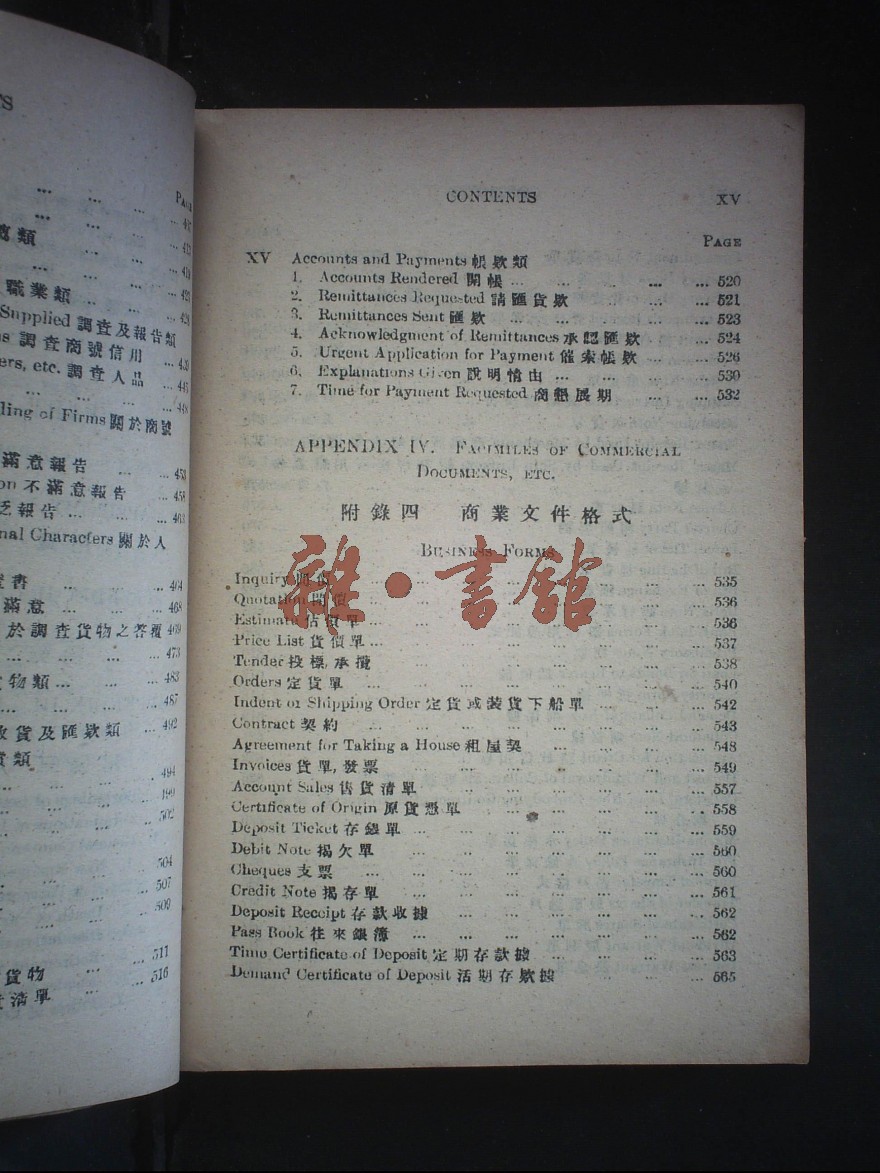 TS
PAGE
類 ... 413
職業類 ...
Supplied 調查及報告類
調查商號信用
ers, etc. 調查人品
ling of Firms 關於商號
滿意報告 ... 453
on 不滿意報告 ... 458
乏報告 ... 463
nal Characters 關於人
書 ... 464
滿意 ... 468
於調查貨物之答覆 469
... 473
物類 ... 483
... 487
收貨及匯欵類 ... 492
類
... 494
... 499
... 502
... 504
... 507
... 509
... 511
貨物 ... 516
清單
CONTENTS XV
PAGE
XV Accounts and Payments 帳欵類
1. Accounts Rendered 開帳 ... 520
2. Remittances Requested 請匯貨欵 ... 521
3. Remittances Sent 匯欵 ... 523
4. Acknowledgment of Remittances 承認匯欵 ... 524
5. Urgent Application for Payment 催索帳欵 ... 526
6. Explanations Given 說明情由 ... 530
7. Time for Payment Requested 商懇展期 ... 532
APPENDIX IV. FACIMILES OF COMMERCIAL
DOCUMENTS, ETC.
附錄四 商業文件格式
BUSINESS FORMS
Inquiry 問價 ... 535
Quotation 開價 ... 536
Estimate 估價單 ... 536
Price List 貨價單 ... 537
Tender 投標, 承攬 ... 538
Orders 定貨單 ... 540
Indent or Shipping Order 定貨或裝貨下船單 ... 542
Contract 契約 ... 543
Agreement for Taking a House 租屋契 ... 548
Invoices 貨單, 發票 ... 549
Account Sales 售貨清單 ... 557
Certificate of Origin 原貨憑單 ... 558
Deposit Ticket 存銀單 ... 559
Debit Note 揭欠單 ... 560
Cheques 支票 ... 560
Credit Note 揭存單 ... 561
Deposit Receipt 存款收據 ... 562
Pass Book 往來銀簿 ... 562
Time Certificate of Deposit 定期存款據 ... 563
Demand Certificate of Deposit 活期存欵據 ... 565
雜·書館